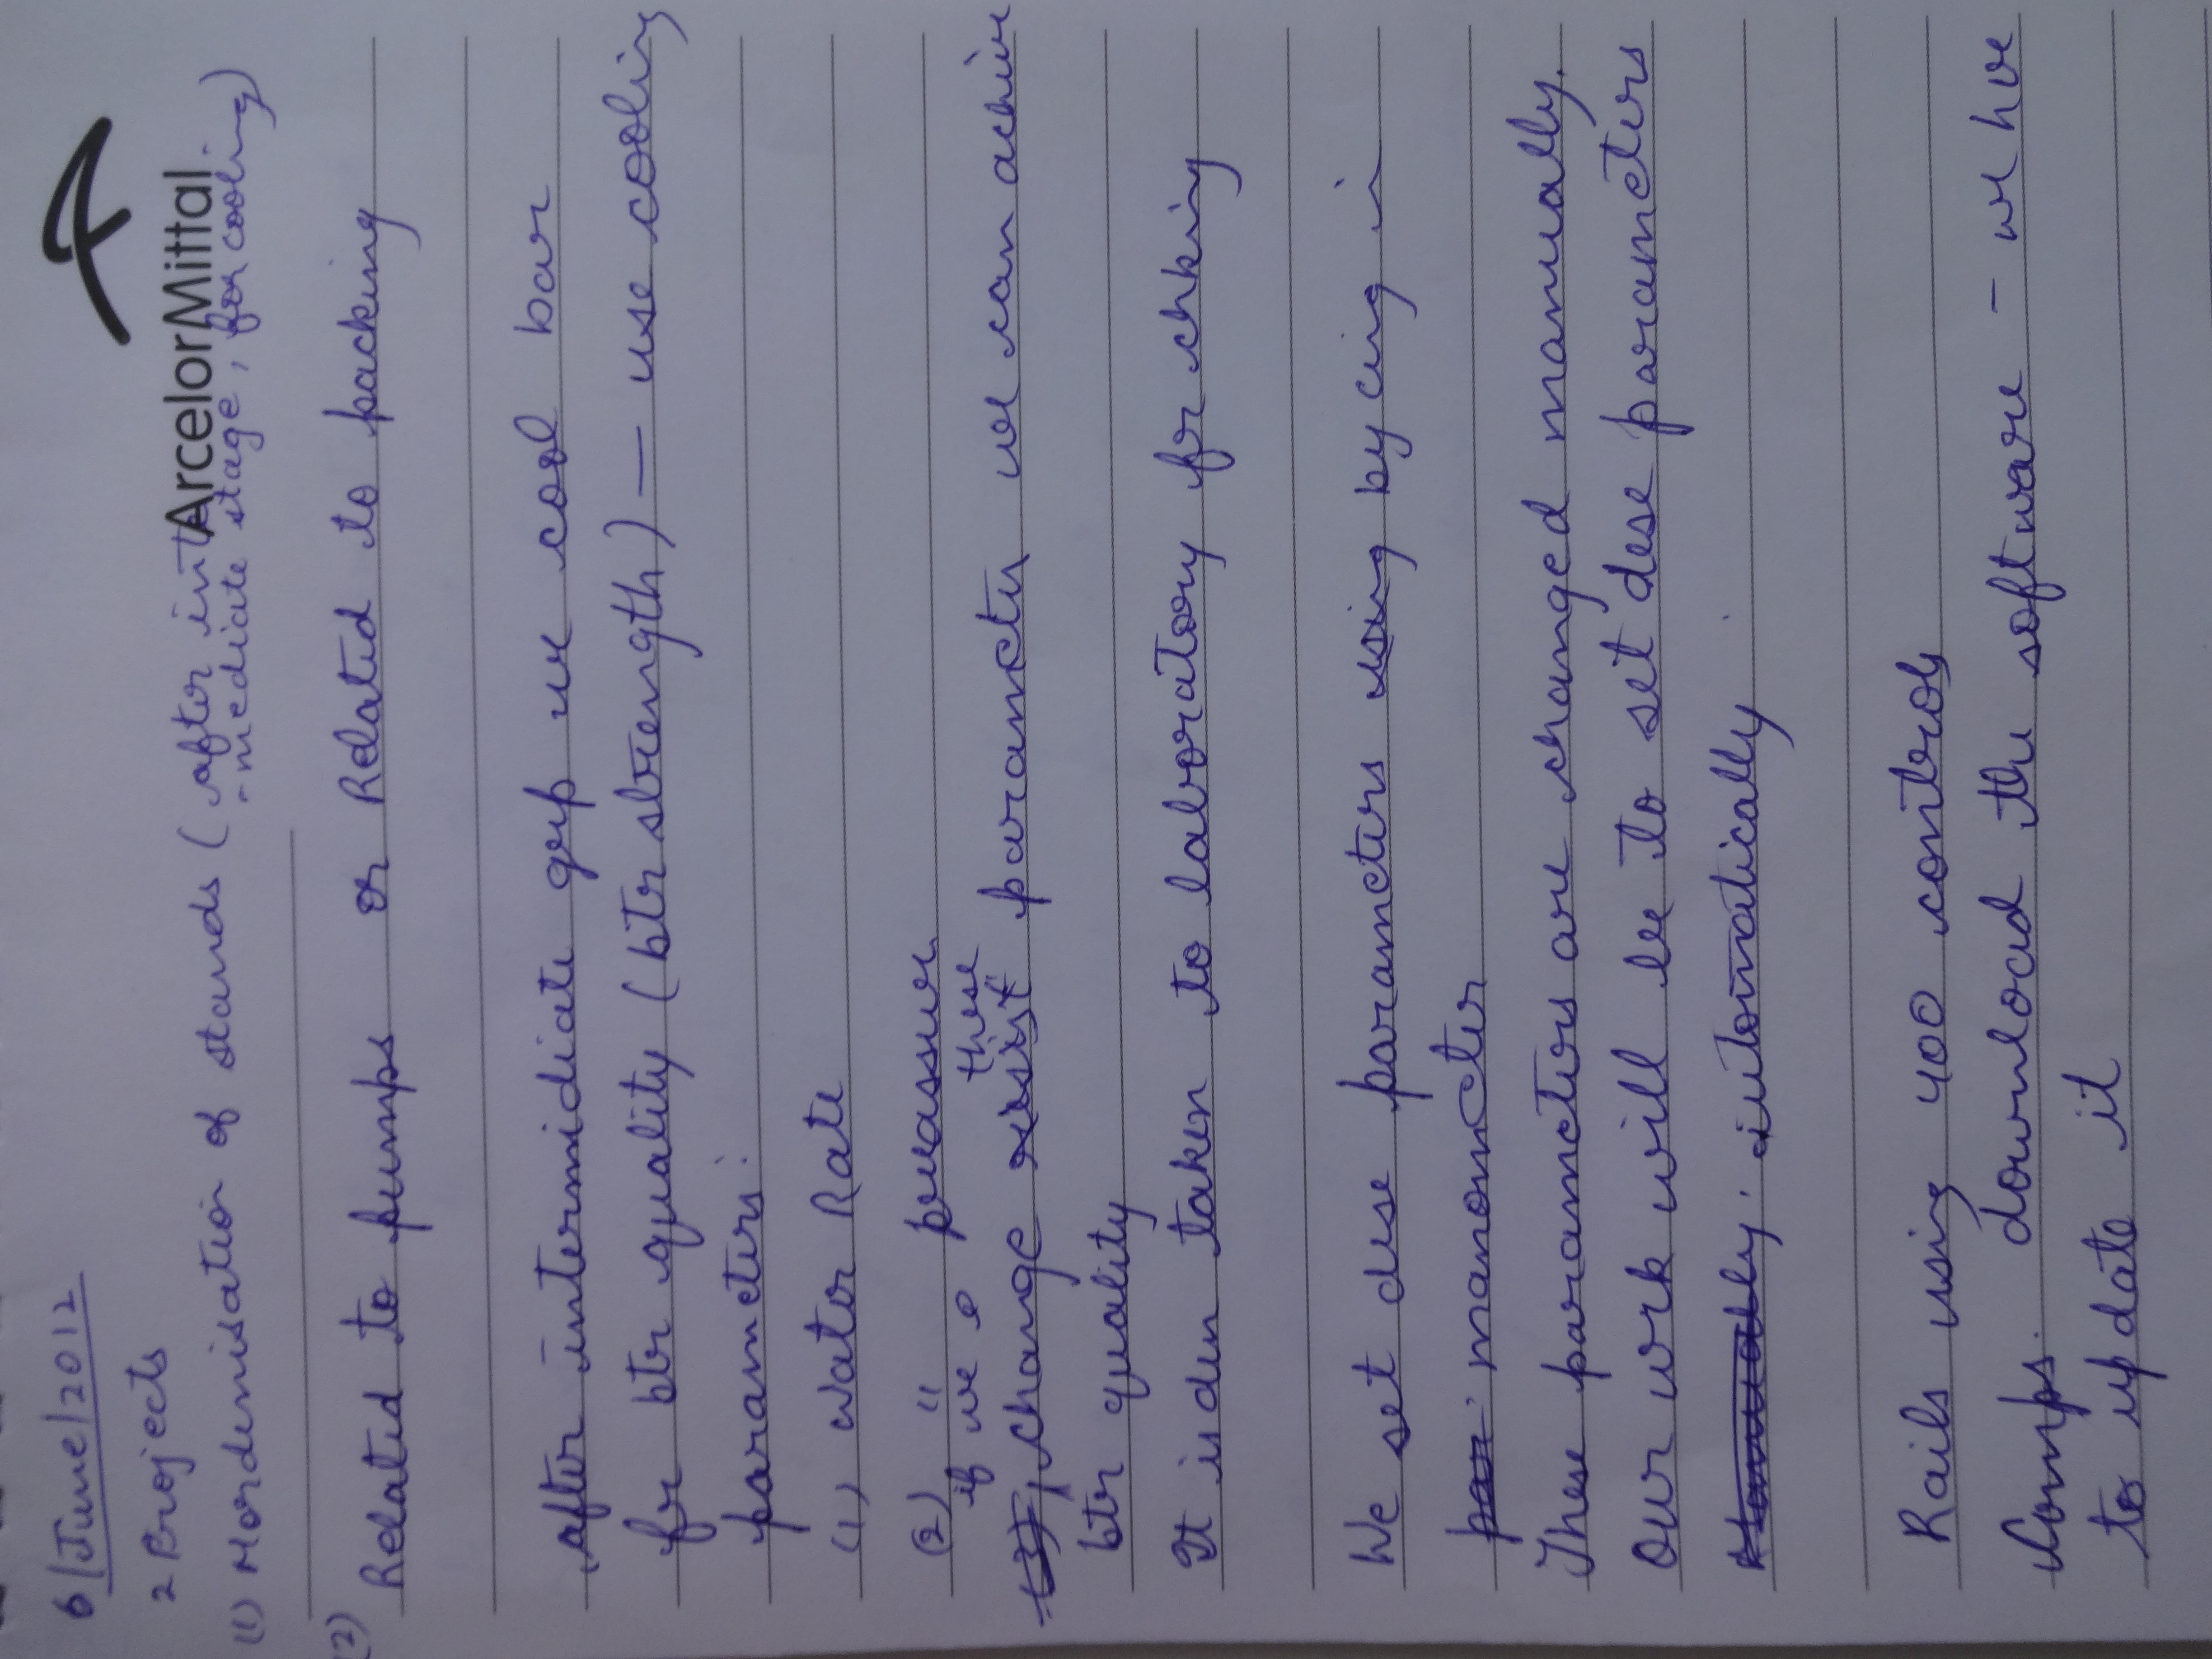 6/June/2012
ArcelorMittal
2 Projects
(1) Mordernisation of stands (after inter
-mediate stage, for cooling)
(2) Related to pumps or Related to packing
after intermidiate grp we cool bar
fr btr quality (btr strength) — use cooling
parameters.
(1) water Rate
(2) " preassure
if we change these parameter we can achive
btr quality
It is den taken to laboratory for chking
We set dese parameters using by cing in
manometer
These parameters are changed manually.
Our work will be to set dese parameters
automatically
Rails using 400 controls
Comps. download the software - we hve
to update it